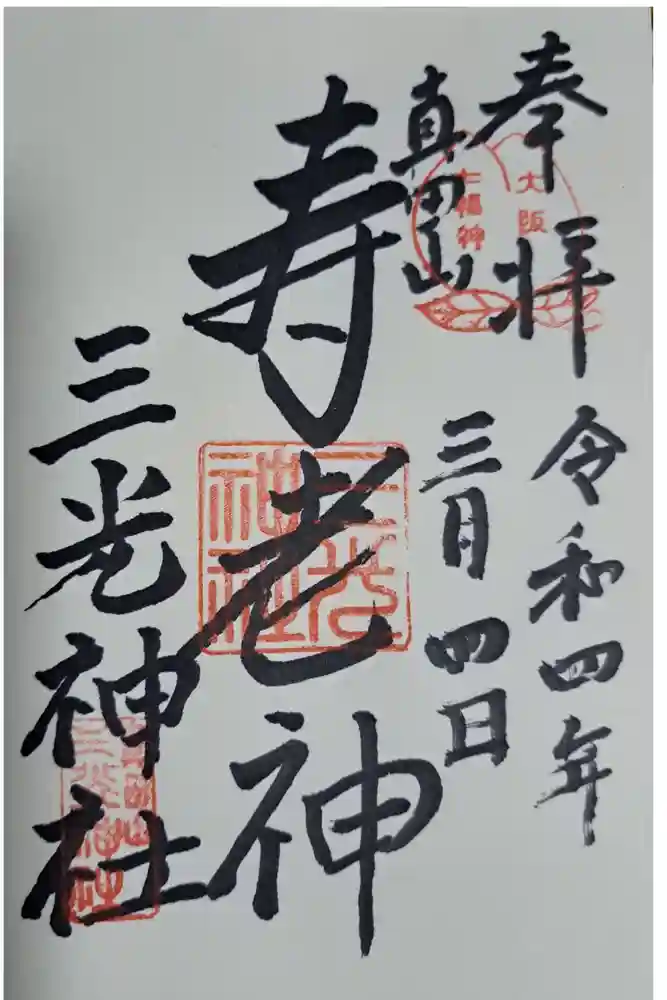 奉拝
令和四年
真田山
三月四日
大阪
七福神
寿老神
三光
神社
三光神社
真田山
三光神社